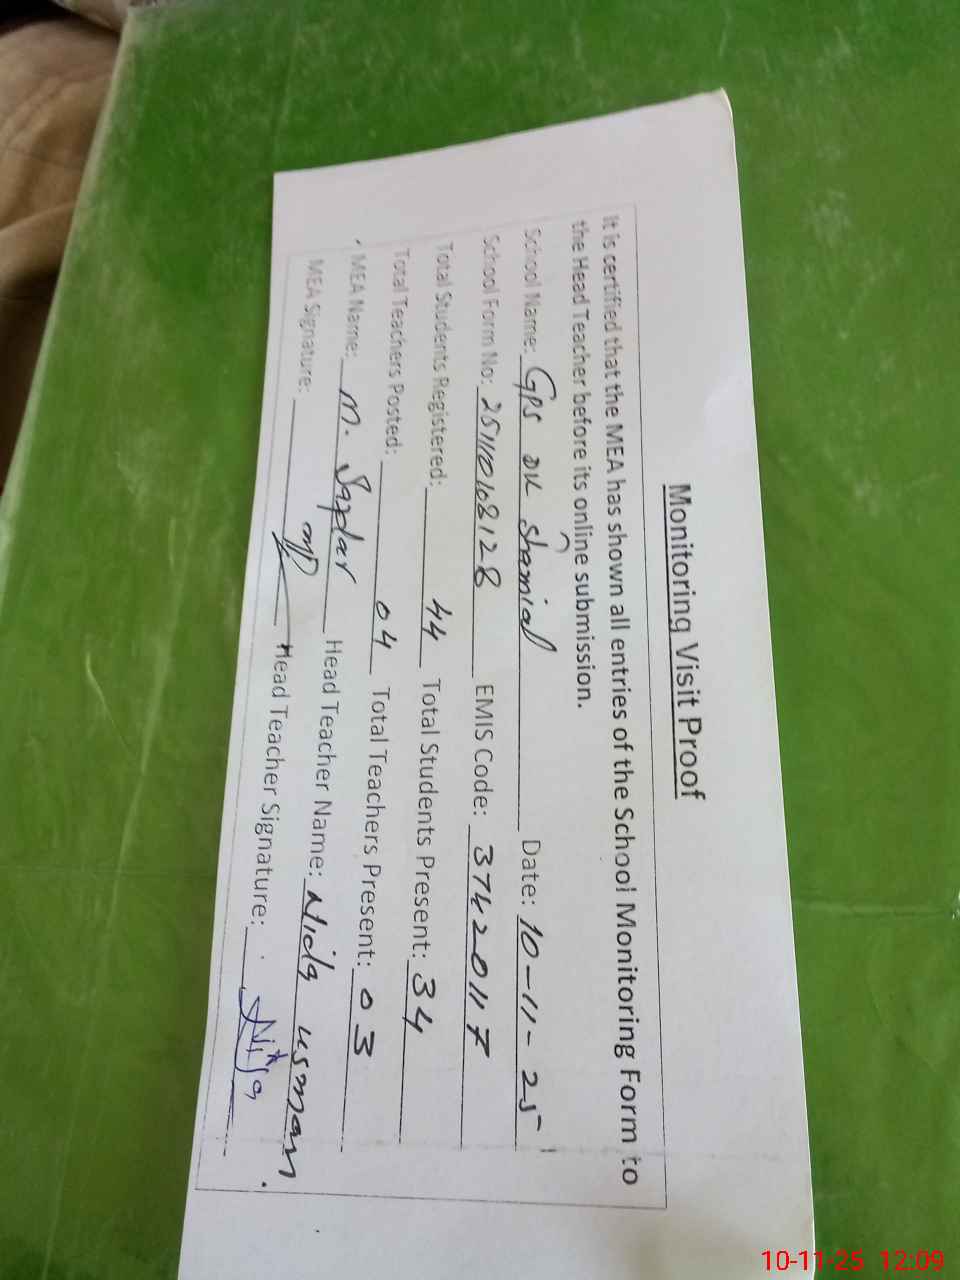 Monitoring Visit Proof
It is certified that the MEA has shown all entries of the School Monitoring Form to
the Head Teacher before its online submission.
School Name: GPS DK Shamial Date: 10-11-25
School Form No: 251110168128 EMIS Code: 37420117
Total Students Registered: 44 Total Students Present: 34
Total Teachers Posted: 04 Total Teachers Present: 03
MEA Name: M. Safdar Head Teacher Name: Nida usman.
MEA Signature: Head Teacher Signature:
10-11-25 12:09